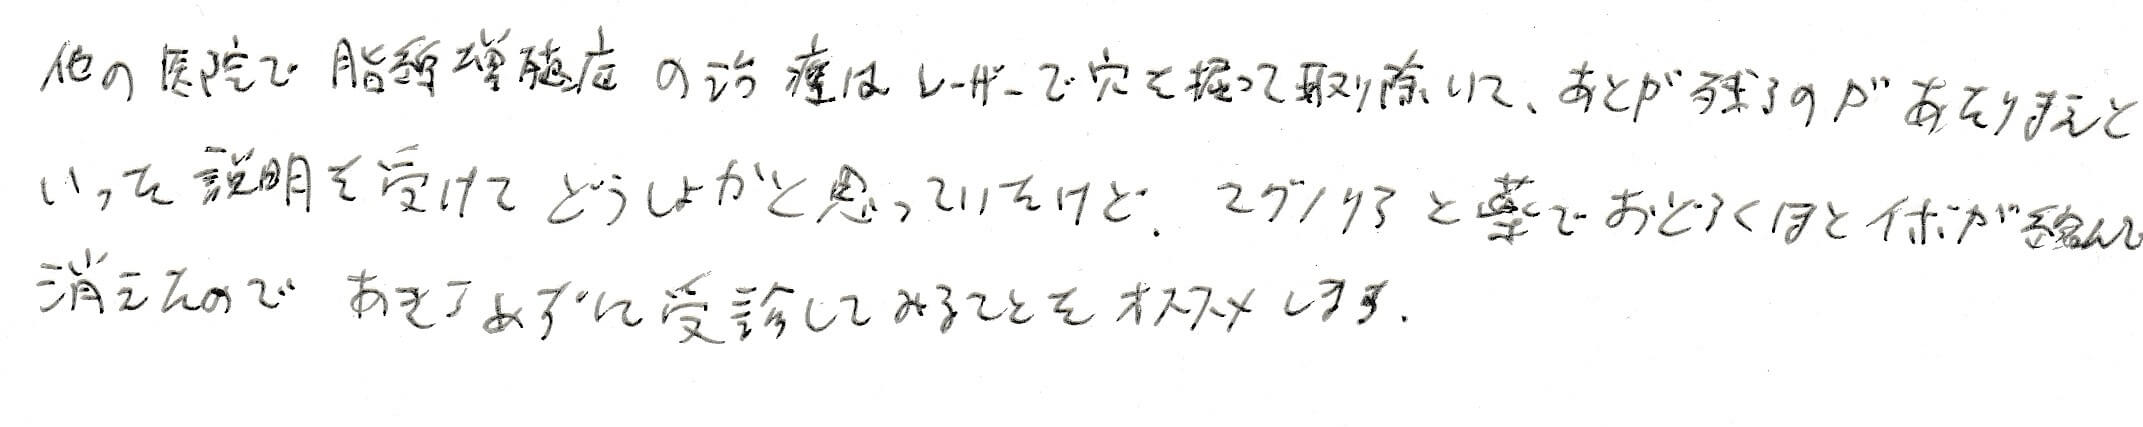 他の医院で 脂腺増殖症 の治療は レーザーで穴を掘って取り除いて、あとが残るのが あたりまえと
いった 説明を受けて どうしよかと思っていたけど. マグノリアと薬で おどろくほど イボが縮んで
消えたので あきらめずに 受診してみることを オススメします.